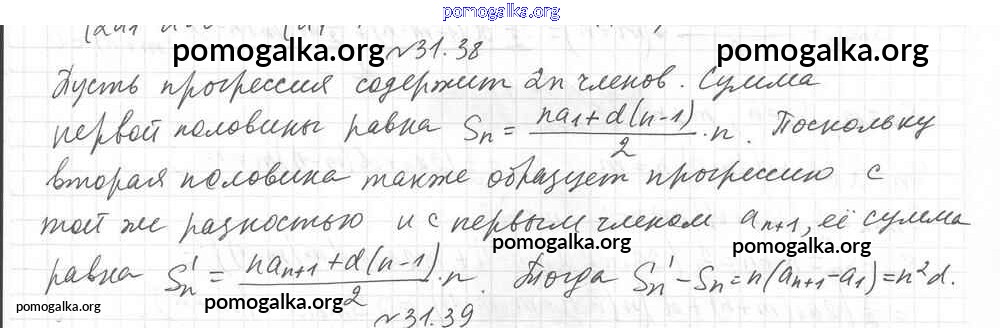 pomogalka.org
pomogalka.org pomogalka.org
№31.38
Пусть прогрессия содержит 2n членов. Сумма
первой половины равна Sn = (na1+d(n-1))/2 · n. Поскольку
вторая половина также образует прогрессию с
той же разностью и с первым членом an+1, её сумма
pomogalka.org
равна S'n = (nan+1+d(n-1))/2 · n. Тогда S'n - Sn = n(an+1 - a1) = n²d.
pomogalka.org pomogalka.org pomogalka.org
№31.39